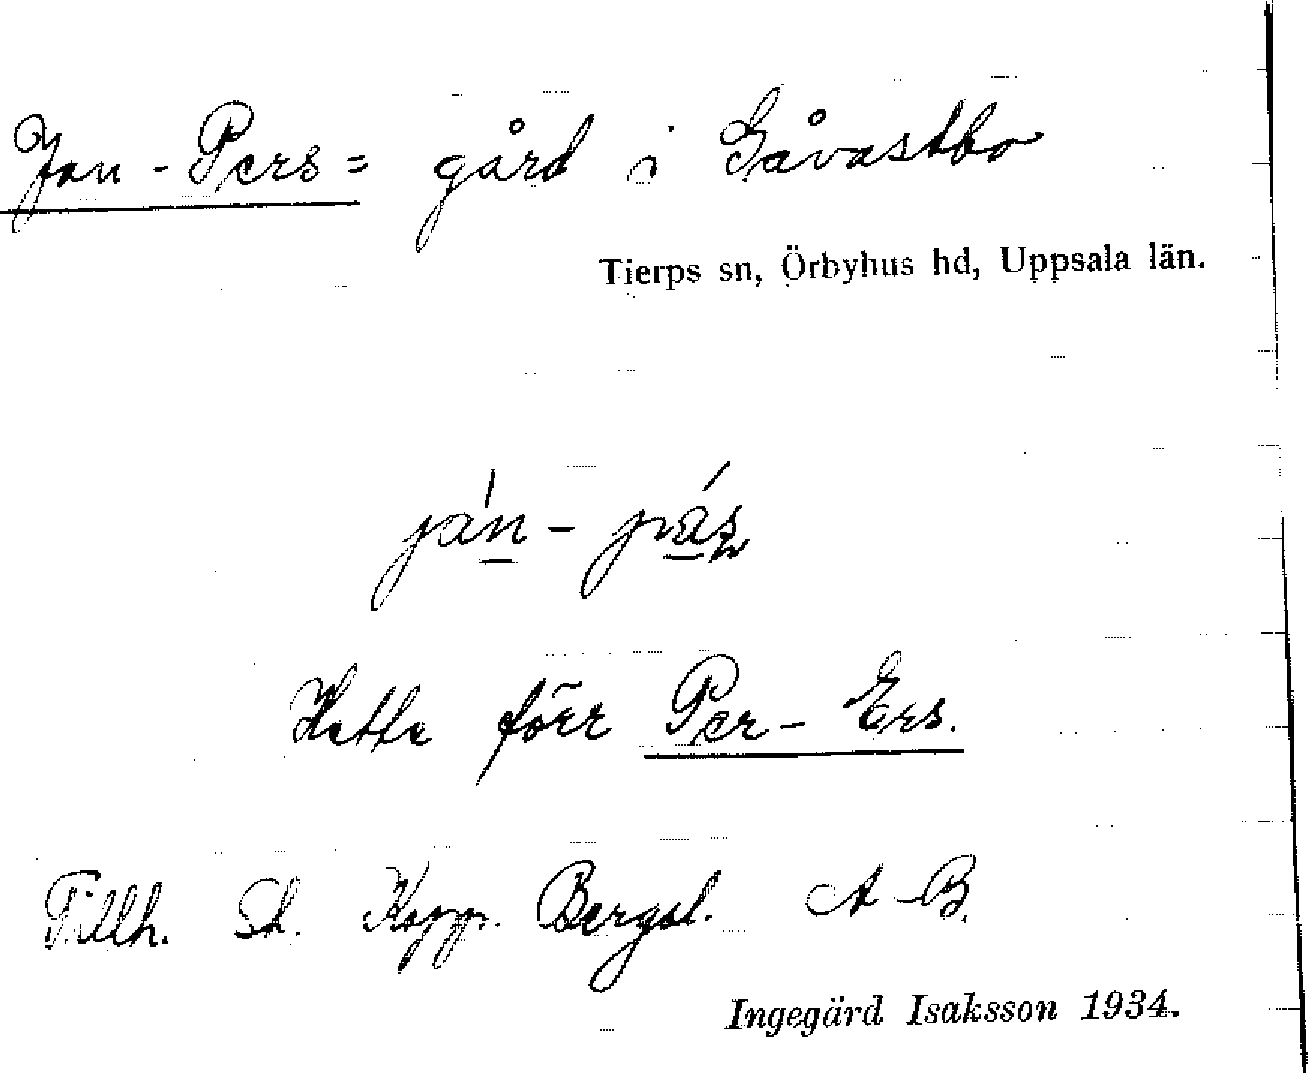 Jan-Pers = gård i Gåvastbo
Tierps sn, Örbyhus hd, Uppsala län.
ján - pás
Hette förr Per-Ers.
Tillh. St. Kopp. Bergsl. A-B.
Ingegärd Isaksson 1934.